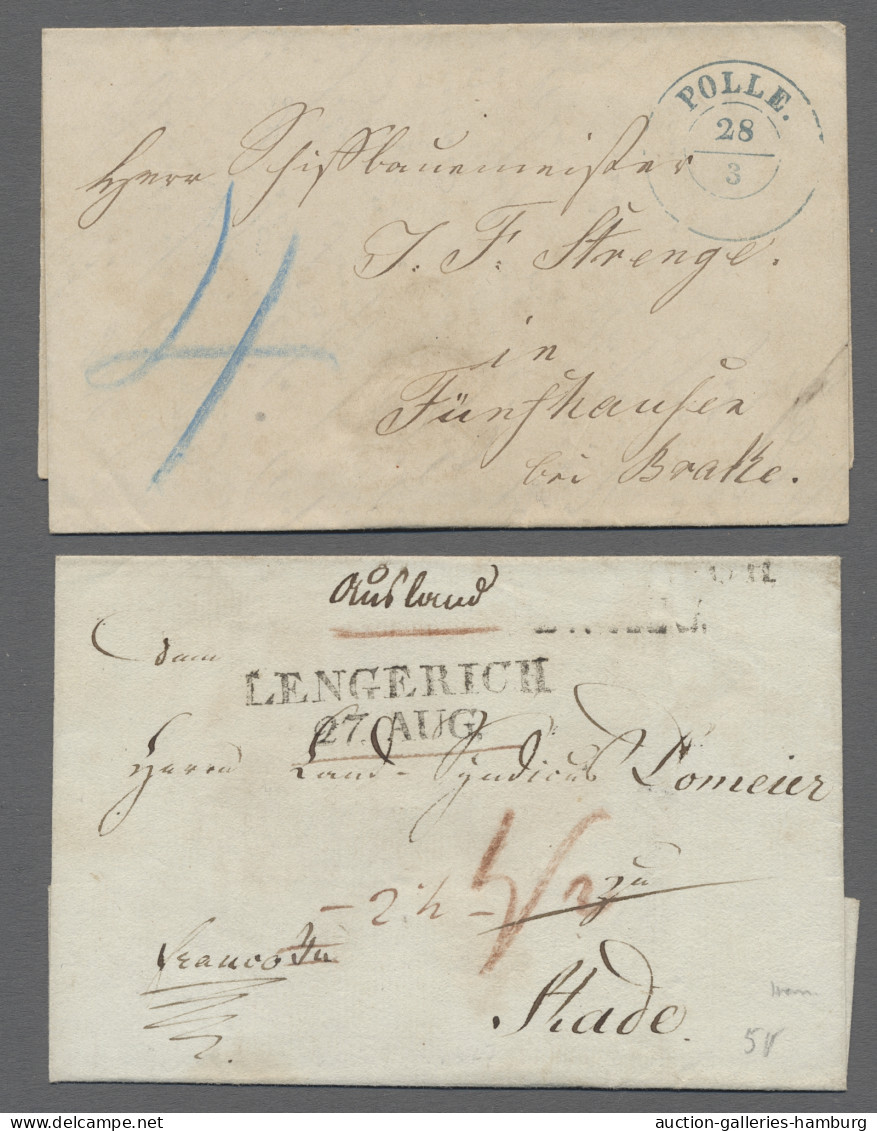 POLLE.
28
3
Herr Schiffbauemeister
J. F. Strenge.
in
Fünfhausen
bei Brake.
4
Ausland
dem
LENGERICH
27. AUG.
Herrn Land-Syndicus Lomeier
zu
franco
Stade.
auction-galleries-hamburg